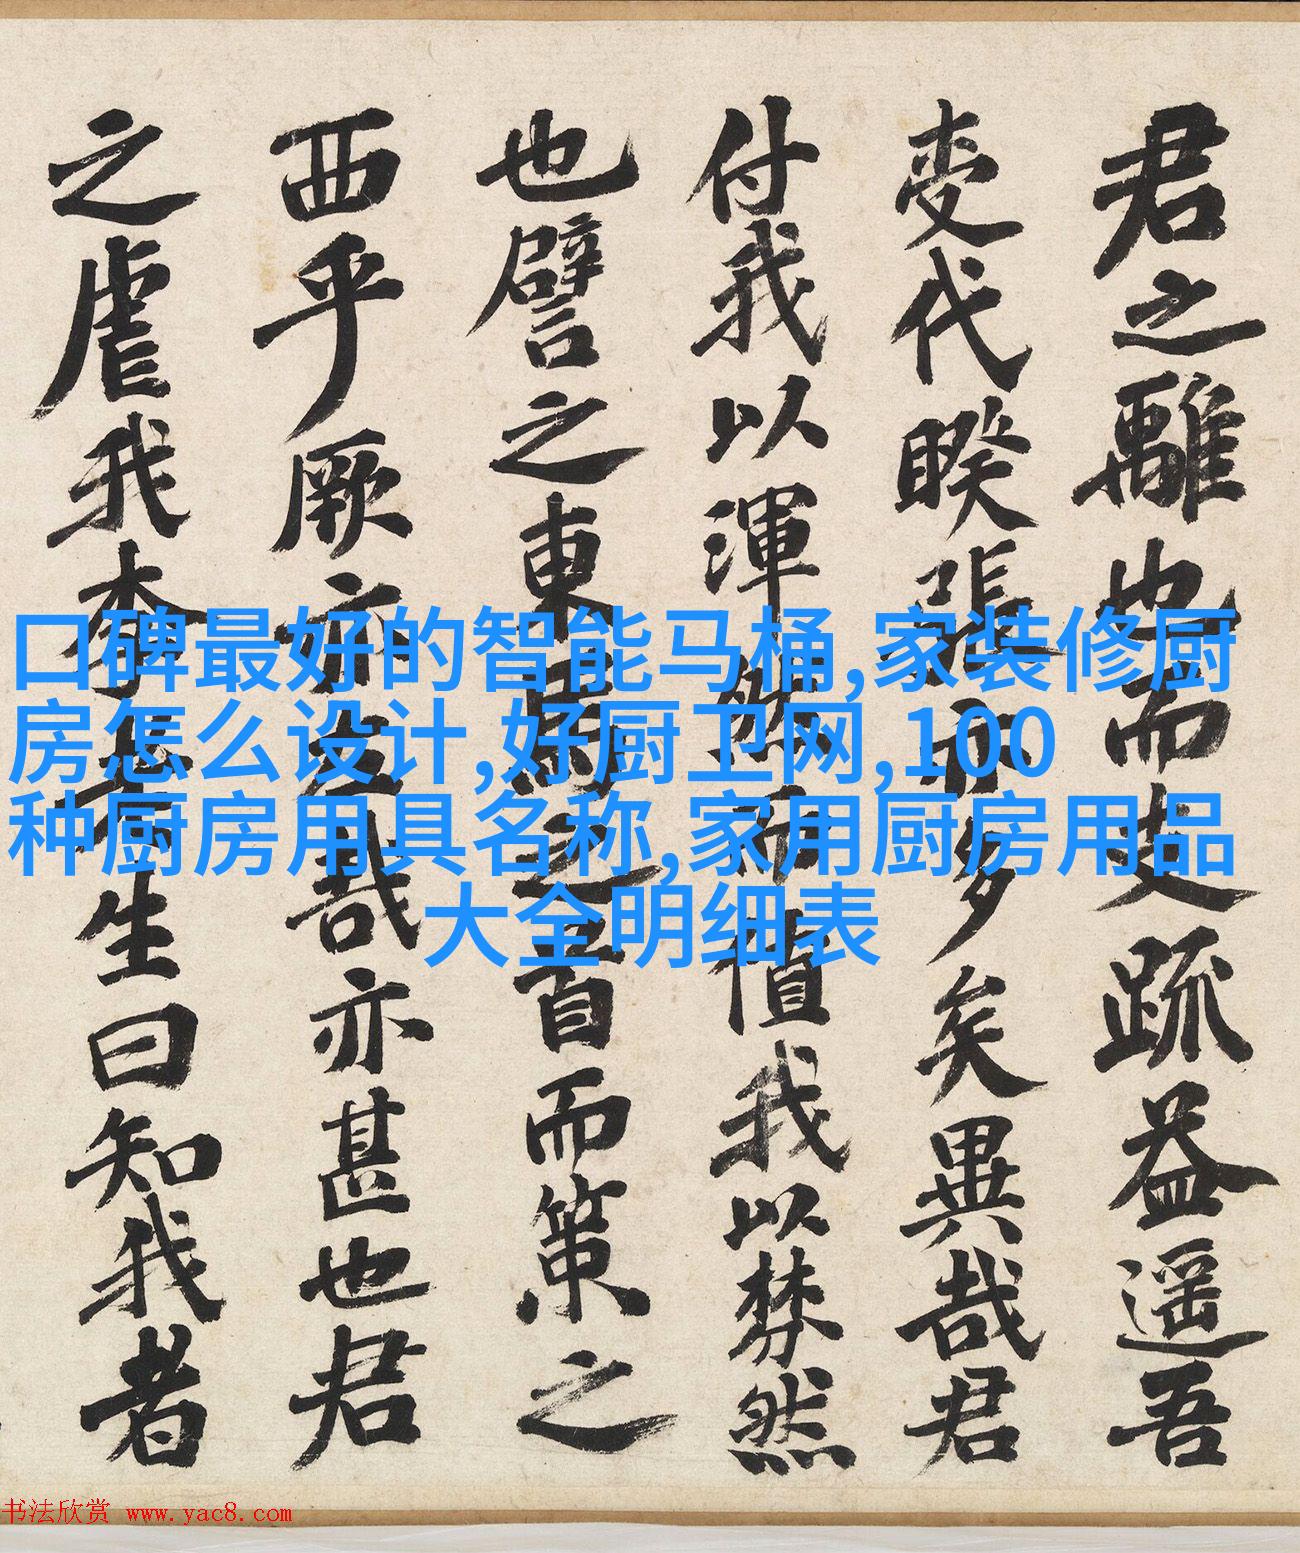 君之離也而支疏益遥吾
代睽張亦多矣異哉君
付我以渾然而值我以棼然
也譬之東馬之首而策之
西乎厥亦左哉亦甚也君
之虐我生曰知我者
口碑最好的智能马桶,家装修厨
房怎么设计,好厨卫网,100
种厨房用具名称,家用厨房用品
大全明细表
书法欣赏 www.yac8.com